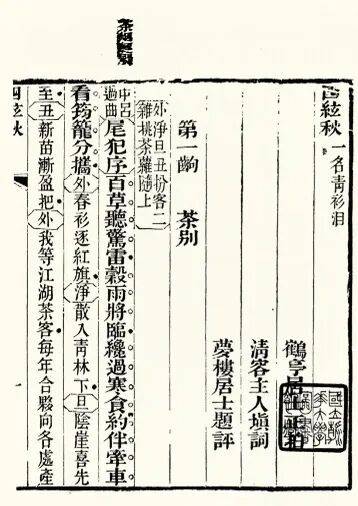 四絃秋 一名青衫泪
鶴亭居士正拍
清容主人填詞
夢樓居士題評
第一齣 茶別
外淨旦丑扮客二
雜挑茶蘿隨上
中呂過曲尾犯序百草聽驚雷穀雨將臨纔過寒食約伴牽車
看筠籠分攜外春衫逐紅旗淨散入青林下旦陰崖喜先
至丑新苗漸盈把外我等江湖茶客每年合夥向各處產
四絃秋